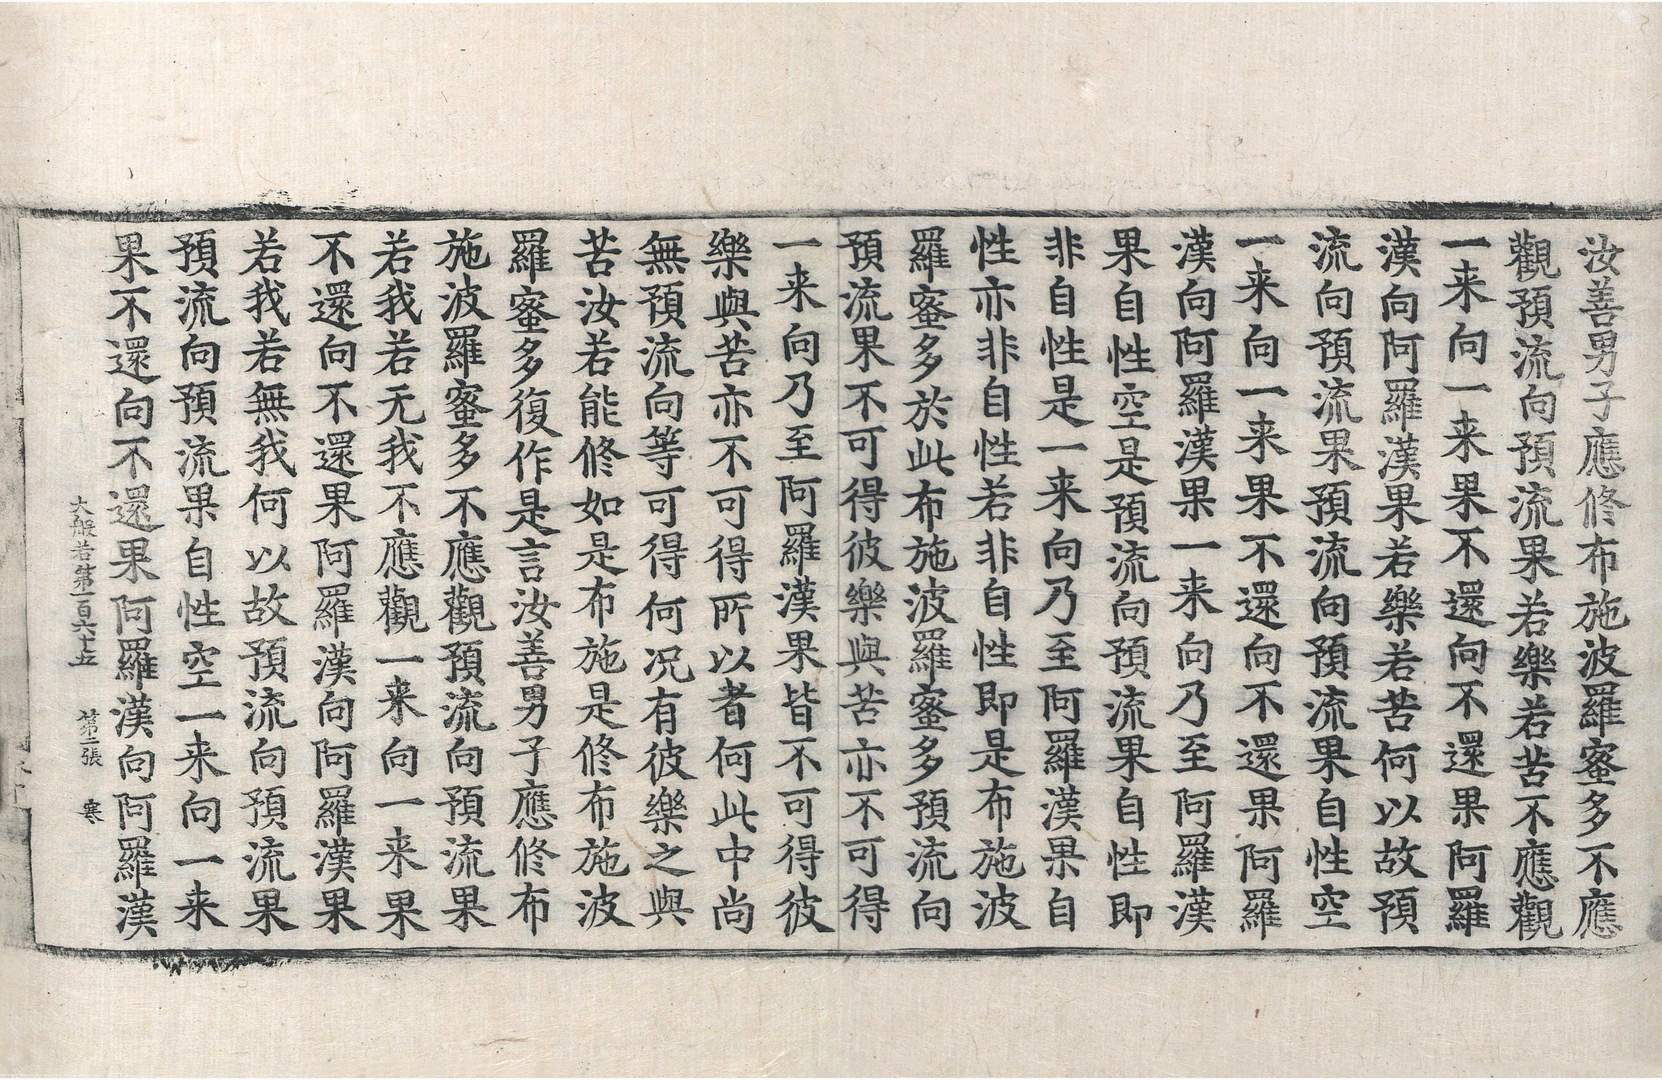 汝善男子應修布施波羅蜜多不應
觀預流向預流果若樂若苦不應觀
一来向一来果不還向不還果阿羅
漢向阿羅漢果若樂若苦何以故預
流向預流果預流向預流果自性空
一来向一来果不還向不還果阿羅
漢向阿羅漢果一来向乃至阿羅漢
果自性空是預流向預流果自性即
非自性是一来向乃至阿羅漢果自
性亦非自性若非自性即是布施波
羅蜜多於此布施波羅蜜多預流向
預流果不可得彼樂與苦亦不可得
一来向乃至阿羅漢果皆不可得彼
樂與苦亦不可得所以者何此中尚
無預流向等可得何况有彼樂之與
苦汝若能修如是布施是修布施波
羅蜜多復作是言汝善男子應修布
施波羅蜜多不應觀預流向預流果
若我若无我不應觀一来向一来果
不還向不還果阿羅漢向阿羅漢果
若我若無我何以故預流向預流果
預流向預流果自性空一来向一来
果不還向不還果阿羅漢向阿羅漢
大般若第一百六十五 第二張 寒